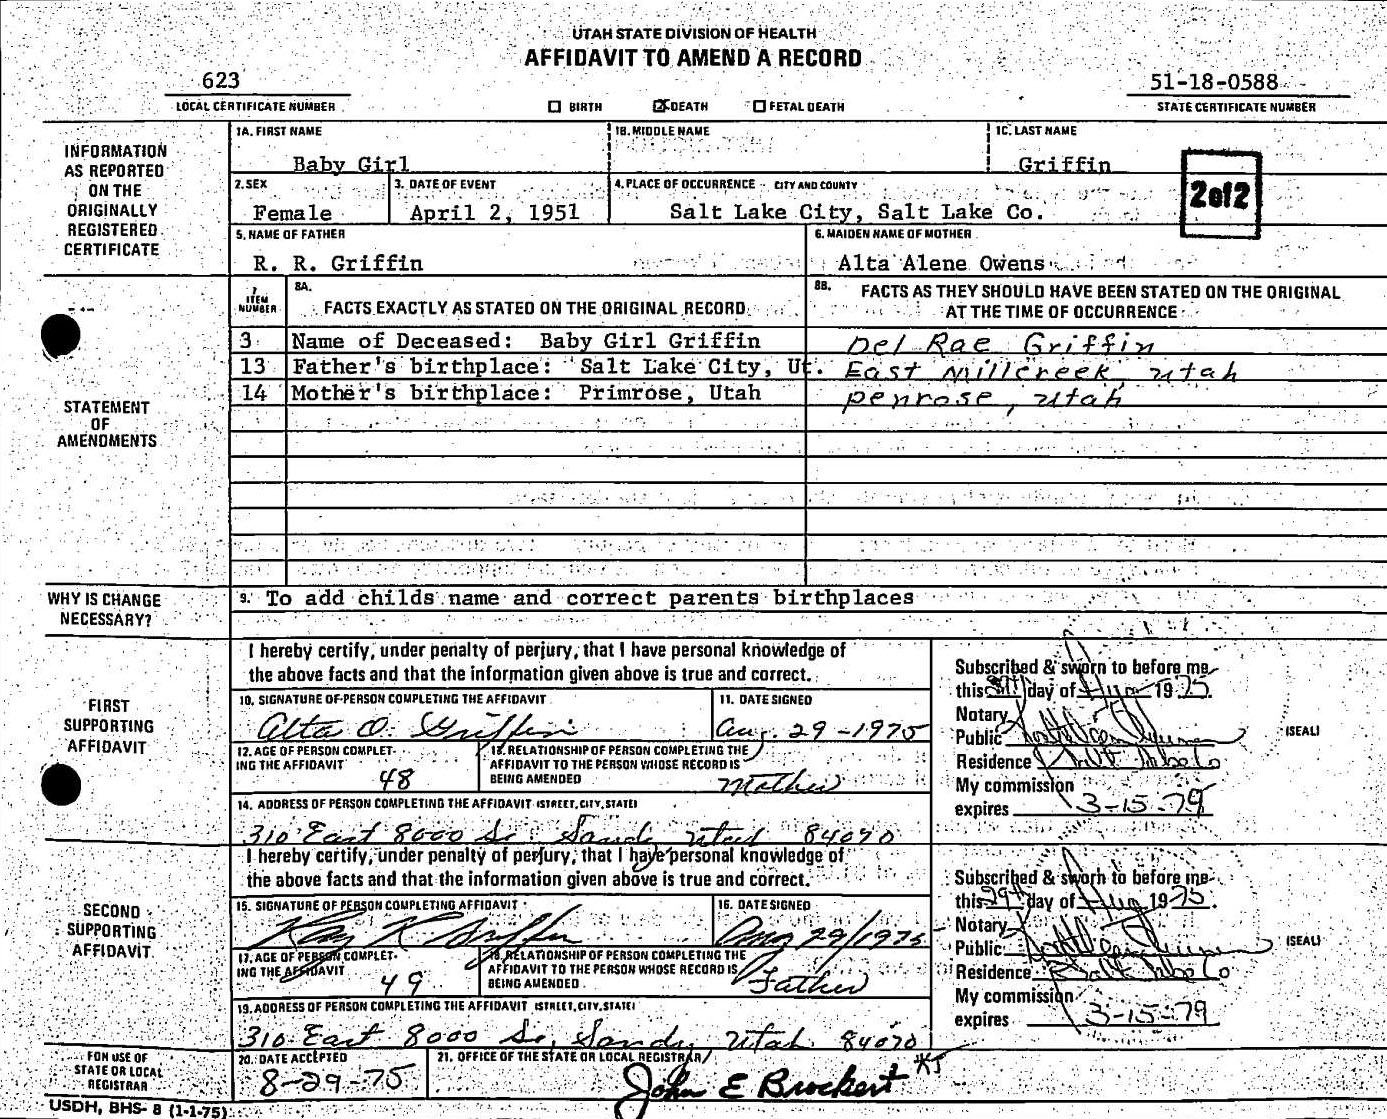 UTAH STATE DIVISION OF HEALTH
AFFIDAVIT TO AMEND A RECORD
623
51-18-0588
LOCAL CERTIFICATE NUMBER
☐ BIRTH ☒ DEATH ☐ FETAL DEATH
STATE CERTIFICATE NUMBER
INFORMATION AS REPORTED ON THE ORIGINALLY REGISTERED CERTIFICATE
1A. FIRST NAME
1B. MIDDLE NAME
1C. LAST NAME
Baby Girl
Griffin
2 of 2
2. SEX
3. DATE OF EVENT
4. PLACE OF OCCURRENCE - CITY AND COUNTY
Female
April 2, 1951
Salt Lake City, Salt Lake Co.
5. NAME OF FATHER
6. MAIDEN NAME OF MOTHER
R. R. Griffin
Alta Alene Owens
STATEMENT OF AMENDMENTS
7 ITEM NUMBER
8A. FACTS EXACTLY AS STATED ON THE ORIGINAL RECORD
8B. FACTS AS THEY SHOULD HAVE BEEN STATED ON THE ORIGINAL AT THE TIME OF OCCURRENCE
3 Name of Deceased: Baby Girl Griffin Del Rae Griffin
13 Father's birthplace: Salt Lake City, Ut. East Millcreek, Utah
14 Mother's birthplace: Primrose, Utah Penrose, Utah
WHY IS CHANGE NECESSARY?
9. To add childs name and correct parents birthplaces
FIRST SUPPORTING AFFIDAVIT
I hereby certify, under penalty of perjury, that I have personal knowledge of
the above facts and that the information given above is true and correct.
10. SIGNATURE OF PERSON COMPLETING THE AFFIDAVIT
11. DATE SIGNED
Alta O. Griffin
Aug. 29-1975
12. AGE OF PERSON COMPLETING THE AFFIDAVIT
48
13. RELATIONSHIP OF PERSON COMPLETING THE AFFIDAVIT TO THE PERSON WHOSE RECORD IS BEING AMENDED
Mother
14. ADDRESS OF PERSON COMPLETING THE AFFIDAVIT (STREET, CITY, STATE)
310 East 8000 So. Sandy Utah 84070
Subscribed & sworn to before me
this 29th day of Aug 1975.
Notary
Public
(SEAL)
Residence
My commission
expires 3-15-79
SECOND SUPPORTING AFFIDAVIT
I hereby certify, under penalty of perjury, that I have personal knowledge of
the above facts and that the information given above is true and correct.
15. SIGNATURE OF PERSON COMPLETING AFFIDAVIT
16. DATE SIGNED
Ray R Griffin
Aug 29/1975
17. AGE OF PERSON COMPLETING THE AFFIDAVIT
49
18. RELATIONSHIP OF PERSON COMPLETING THE AFFIDAVIT TO THE PERSON WHOSE RECORD IS BEING AMENDED
Father
19. ADDRESS OF PERSON COMPLETING THE AFFIDAVIT (STREET, CITY, STATE)
310 East 8000 So, Sandy Utah 84070
Subscribed & sworn to before me
this 29th day of Aug 1975.
Notary
Public
(SEAL)
Residence
My commission
expires 3-15-79
FOR USE OF STATE OR LOCAL REGISTRAR
20. DATE ACCEPTED
8-29-75
21. OFFICE OF THE STATE OR LOCAL REGISTRAR
John E Brockert KJ
USDH, BHS-8 (1-1-75)